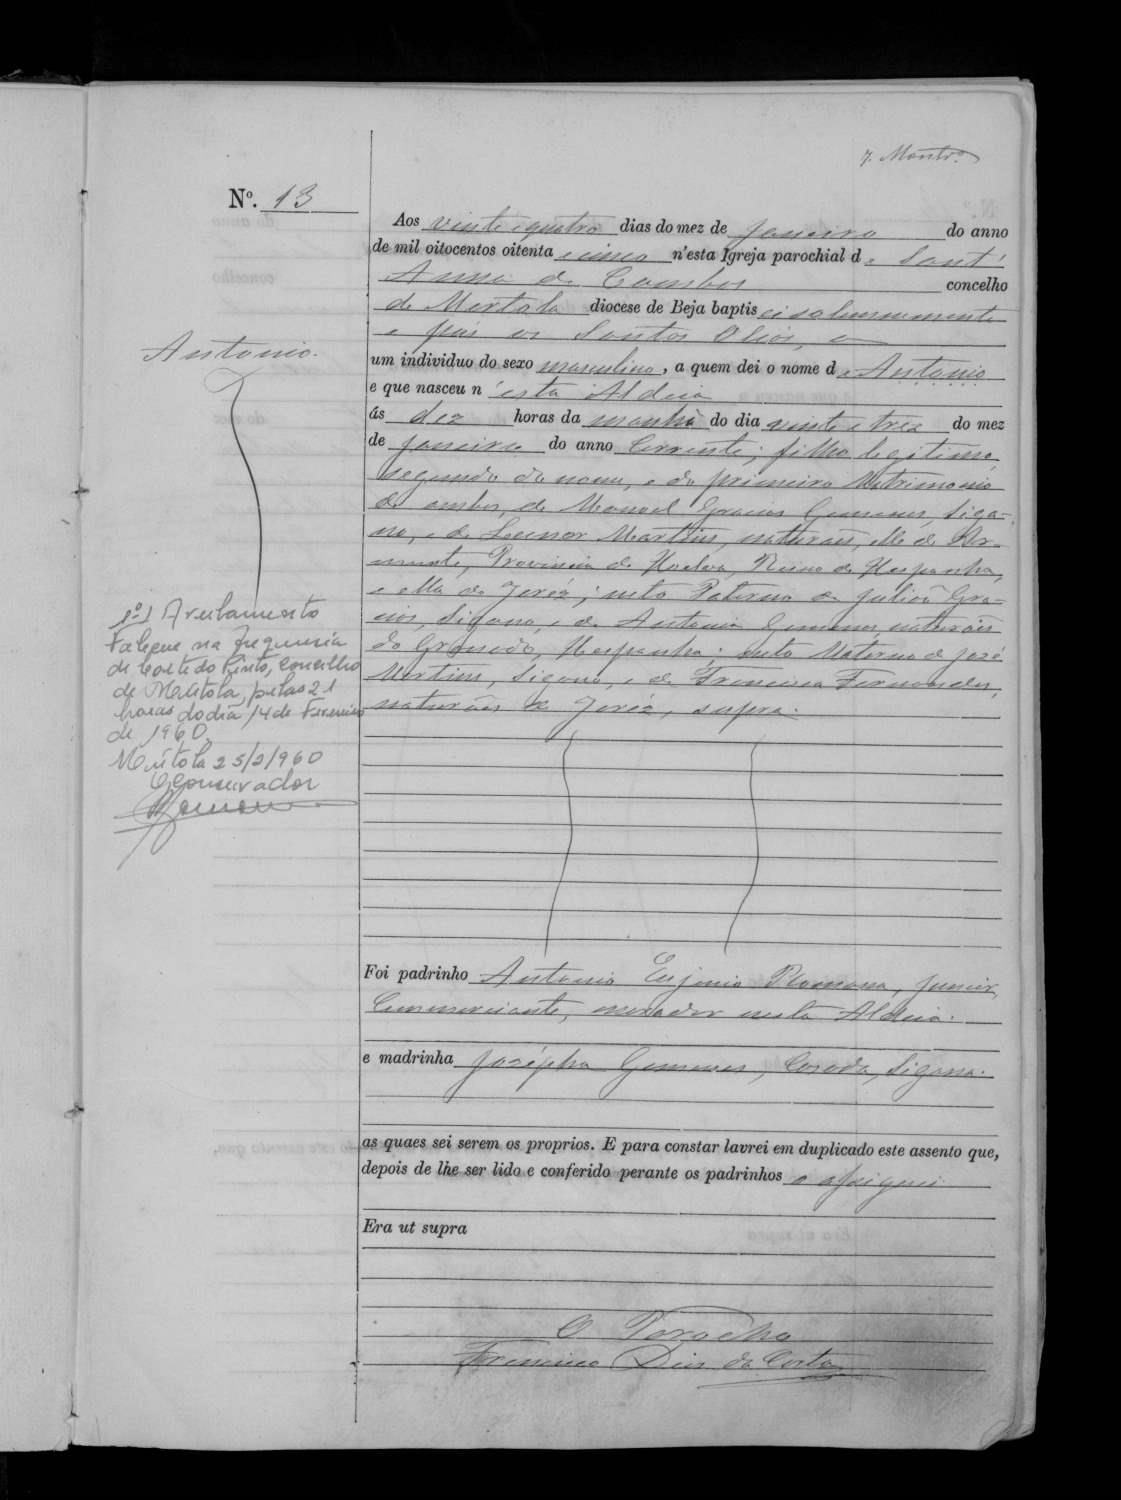 7. Monteiro
Nº. 13
Aos vinte e quatro dias do mez de Janeiro do anno
de mil oitocentos oitenta e cinco n'esta Igreja parochial de Sant'
Anna de Cambas concelho
de Mertola diocese de Beja baptisei solemnemente
e puz os Santos Oleos, a
um individuo do sexo masculino, a quem dei o nome de Antonio
e que nasceu n'esta Aldeia
ás dez horas da manhã do dia vinte e trez do mez
de Janeiro do anno Corrente; filho legitimo,
segundo do nome, e do primeiro Matrimonio
de ambos, de Manoel Gracias Gimenes, Siga-
no, e de Leonor Martins, naturaes, elle de Ar-
monte, Provincia de Huelva, Reino de Hespanha,
e ella de Jeréz; neto Paterno de Julião Gra-
cias, Sigano, e de Antonia Gimenes, naturaes
de Granada, Hespanha; neto Materno de José
Martins, Sigano, e de Francisca Fernandes,
naturaes de Jeréz, supra.
Antonio.
nº1 Averbamento
Faleceu na freguesia
de Corte do Pinto, concelho
de Mértola, pelas 21
horas do dia 14 de Fevereiro
de 1960.
Mértola 25/2/960
O Conservador
Foi padrinho Antonio Eujenio Romana, Junior,
Commerciante, morador nesta Aldeia.
e madrinha Josépha Gimenes, Casada, Sigana.
as quaes sei serem os proprios. E para constar lavrei em duplicado este assento que,
depois de lhe ser lido e conferido perante os padrinhos o assignei
Era ut supra
O Parocho
Francisco Dias da Costa